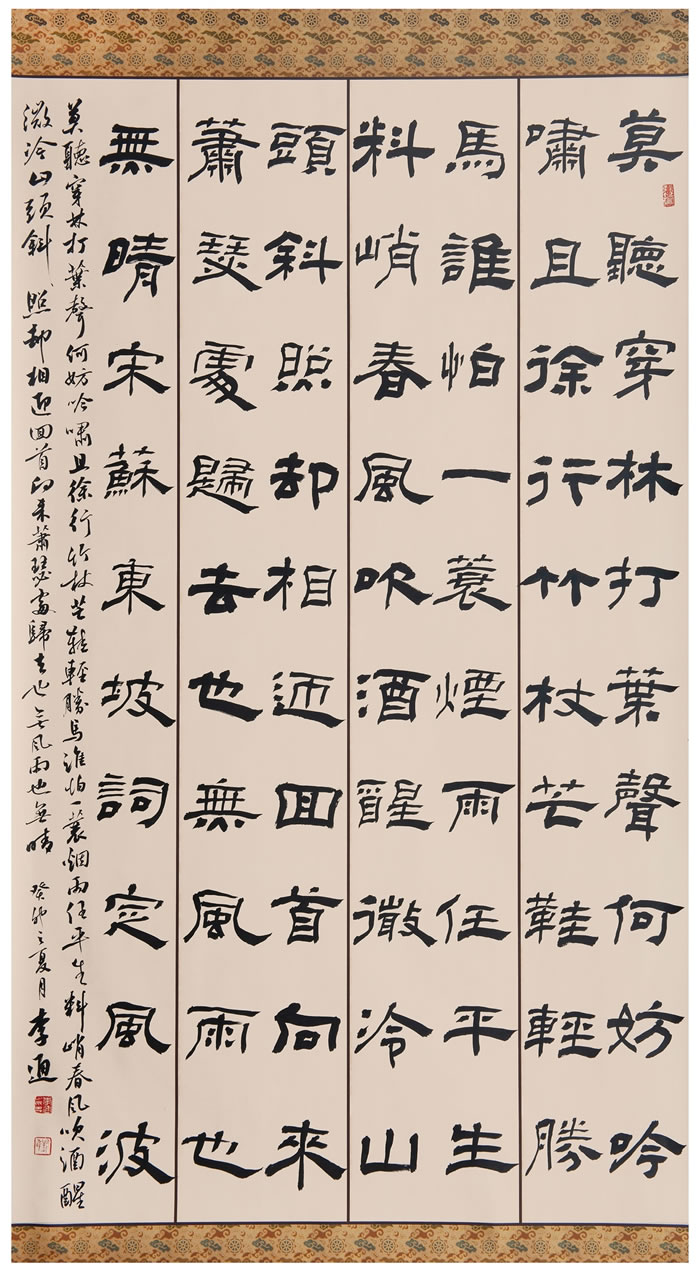 莫聽穿林打葉聲何妨吟
嘯且徐行竹杖芒鞋輕勝
馬誰怕一蓑煙雨任平生
料峭春風吹酒醒微冷山
頭斜照却相迎回首向來
蕭瑟處歸去也無風雨也
無晴宋蘇東坡詞定風波
莫聽穿林打葉聲何妨吟嘯且徐行竹杖芒鞋輕勝馬誰怕一蓑烟雨任平生料峭春風吹酒醒
微冷山頭斜照却相迎回首向來蕭瑟處歸去也無風雨也無晴 癸卯之夏月李